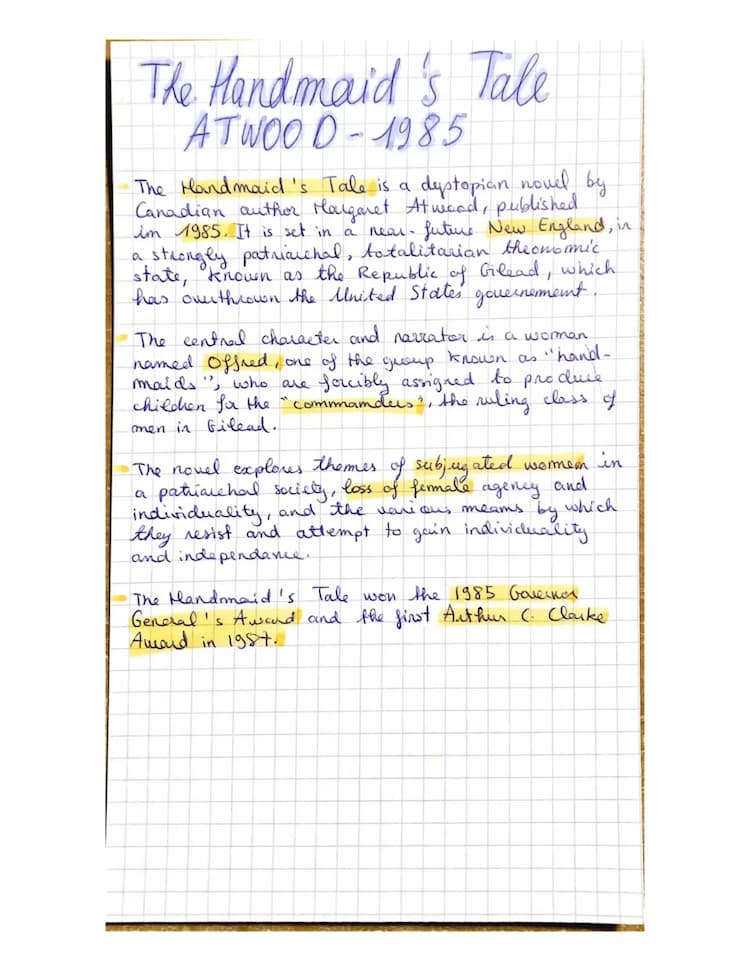 The Handmaid's Tale
ATWOOD - 1985
- The Handmaid's Tale is a dystopian novel by
Canadian author Margaret Atwood, published
in 1985. It is set in a near-future New England, in
a strongly patriarchal, totalitarian theonomic
state, known as the Republic of Gilead, which
has overthrown the United States governement.
- The central character and narrator is a woman
named Offred, one of the group known as "hand-
maids", who are forcibly assigned to produce
children for the "commamders", the ruling class of
men in Gilead.
- The novel explores themes of subjugated women in
a patriarchal society, loss of female agency and
individuality, and the various means by which
they resist and attempt to gain individuality
and independance.
- The Handmaid's Tale won the 1985 Governor
General's Award and the first Arthur C. Clarke
Award in 1987.